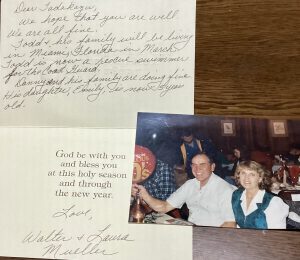 Dear Tadakazu,
We hope that you are well.
We are all fine.
Todd & his family will be living
in Miami, Florida in March
Todd is now a rescue swimmer
for the Coast Guard.
Danny and his family are doing fine
His daughter, Emily is now 3 years
old.
God be with you
and bless you
at this holy season
and through
the new year.
Love,
Walter & Laura
Mueller